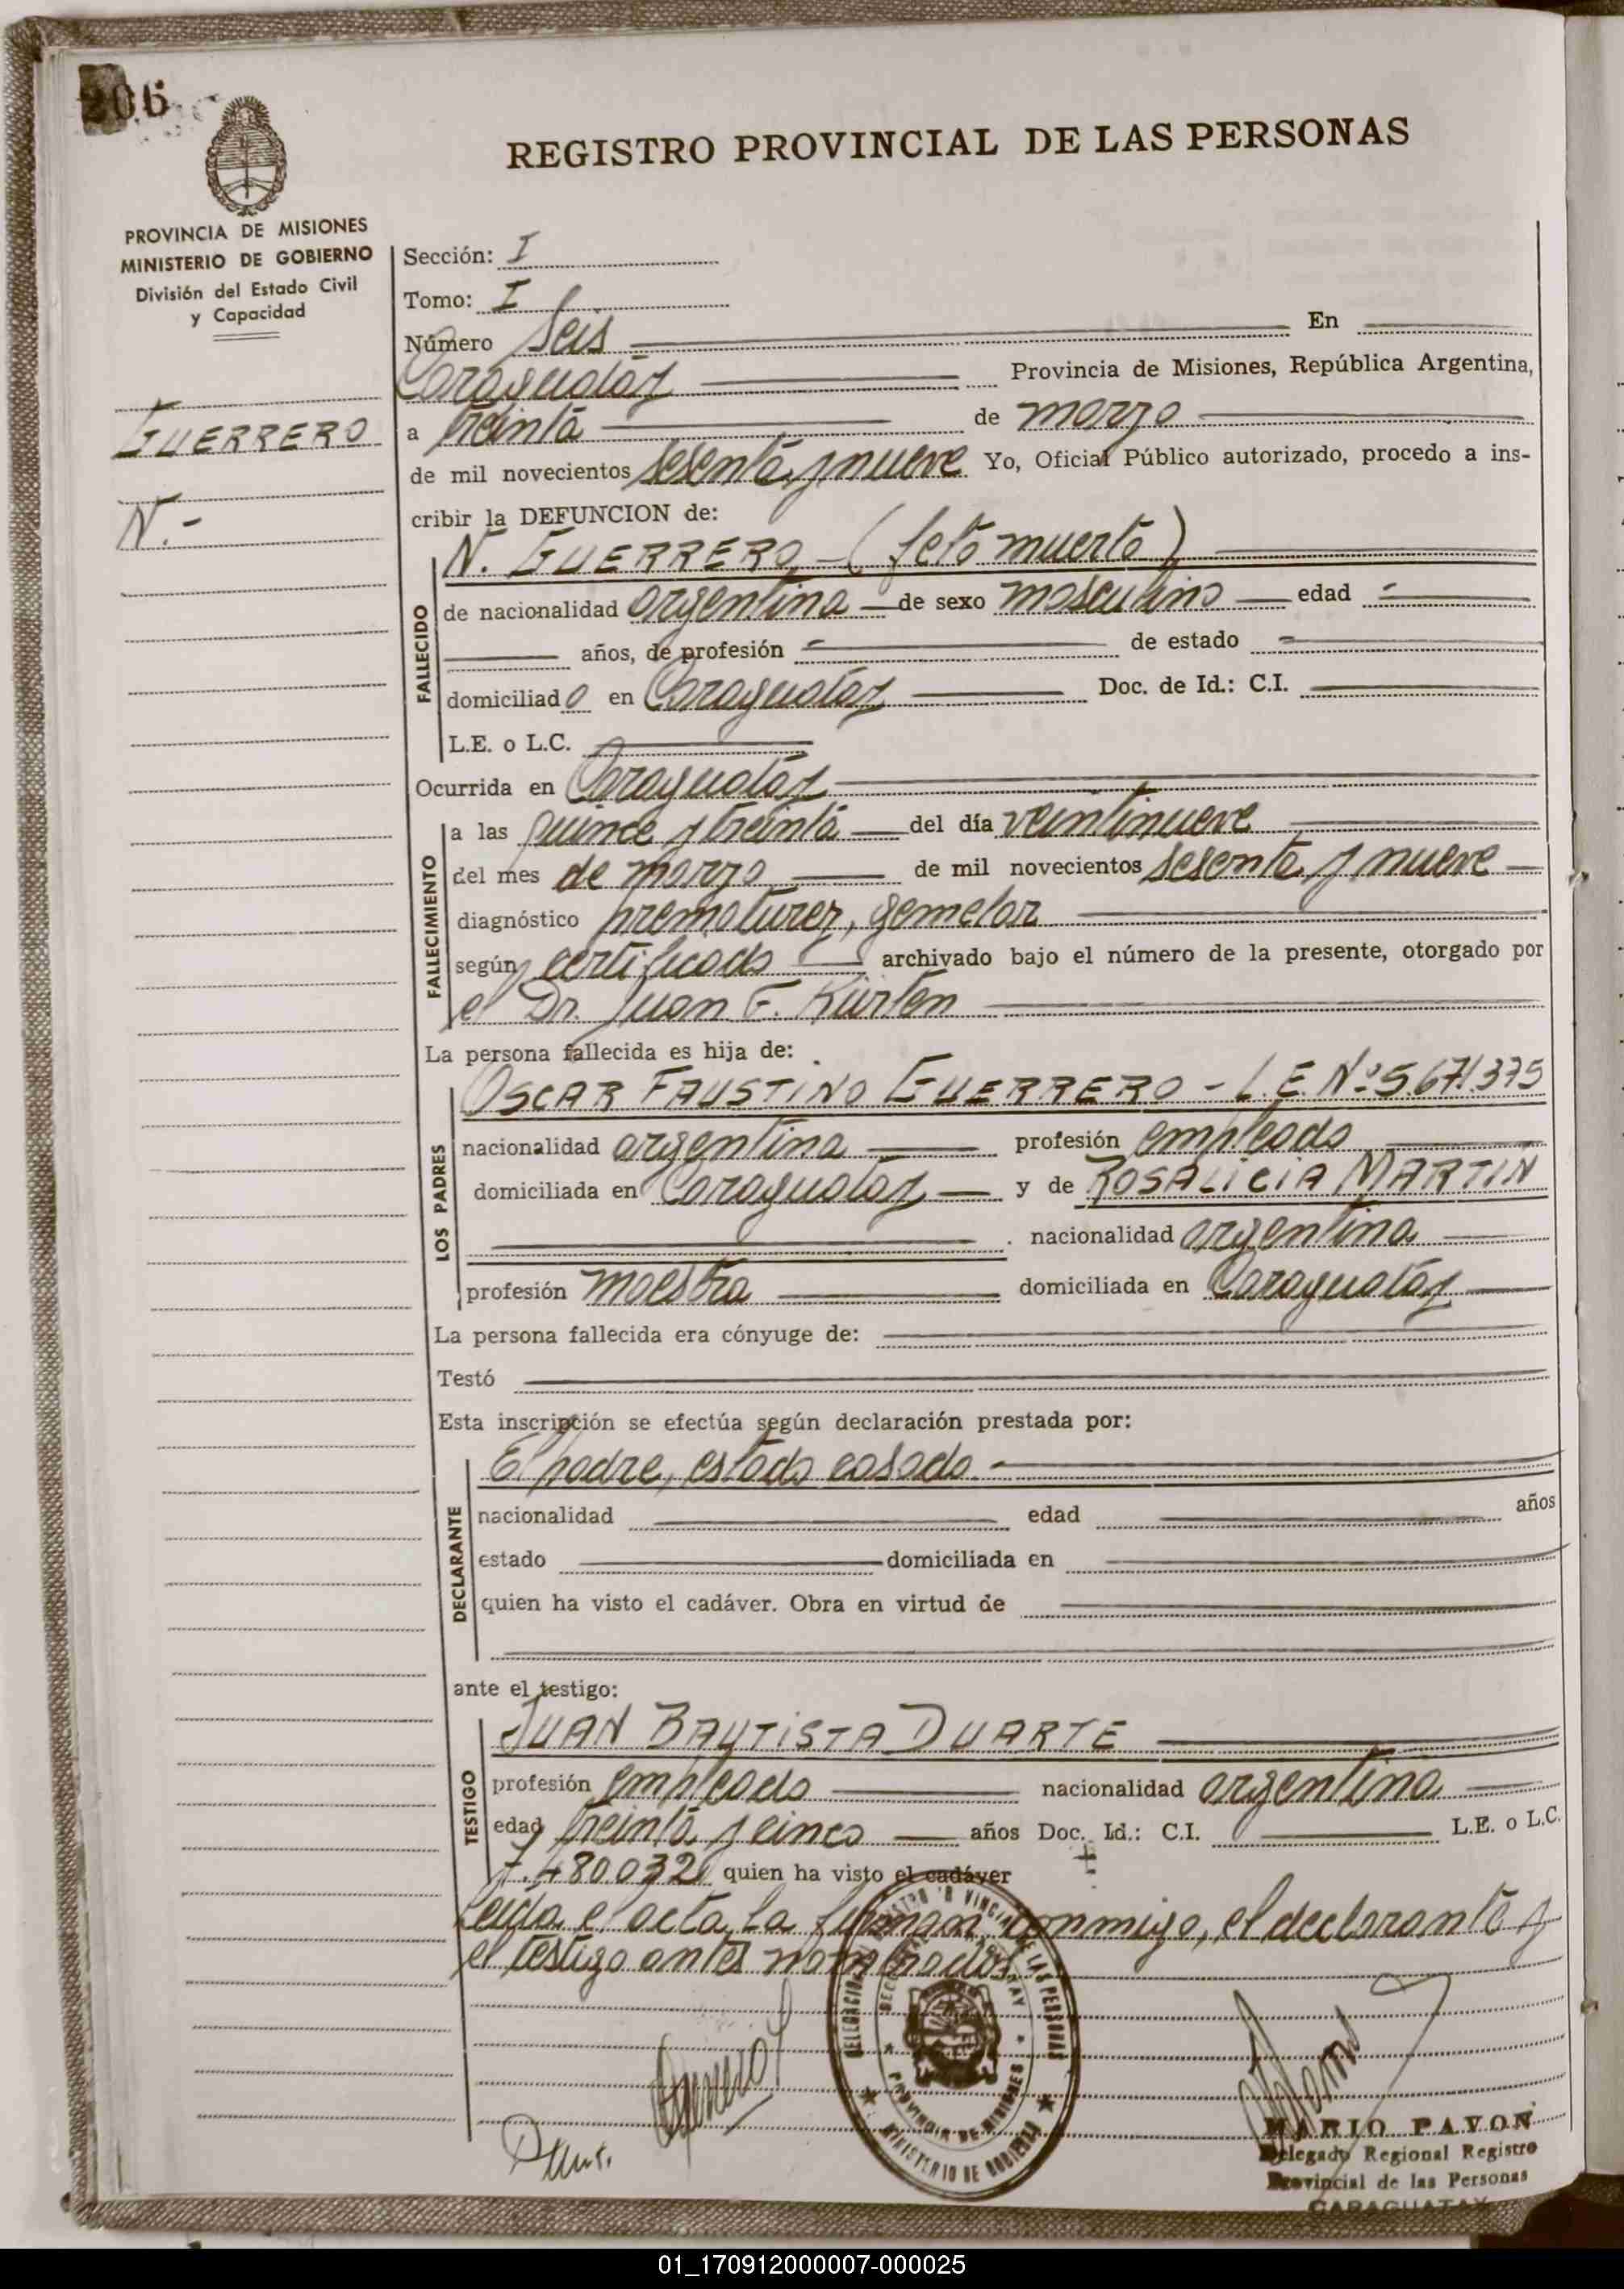 206
REGISTRO PROVINCIAL DE LAS PERSONAS
PROVINCIA DE MISIONES
MINISTERIO DE GOBIERNO
División del Estado Civil
y Capacidad
GUERRERO
N.-
Sección: I
Tomo: I
Número Seis En
Caraguatay Provincia de Misiones, República Argentina,
a treinta de marzo
de mil novecientos sesenta y nueve Yo, Oficial Público autorizado, procedo a ins-
cribir la DEFUNCION de:
N. GUERRERO - (feto muerto)
FALLECIDO
de nacionalidad argentina de sexo masculino edad -
años, de profesión - de estado -
domiciliado en Caraguatay Doc. de Id.: C.I.
L.E. o L.C.
Ocurrida en Caraguatay
FALLECIMIENTO
a las quince y treinta del día veintinueve
del mes de marzo de mil novecientos sesenta y nueve
diagnóstico prematurez, gemelar
según certificado archivado bajo el número de la presente, otorgado por
el Dr. Juan F. Kürten
La persona fallecida es hija de:
LOS PADRES
OSCAR FAUSTINO GUERRERO - L.E. Nº 5.671.375
nacionalidad argentina profesión empleado
domiciliada en Caraguatay y de ROSALICIA MARTIN
nacionalidad argentina
profesión maestra domiciliada en Caraguatay
La persona fallecida era cónyuge de:
Testó
Esta inscripción se efectúa según declaración prestada por:
DECLARANTE
El padre, estado casado.-
nacionalidad edad años
estado domiciliada en
quien ha visto el cadáver. Obra en virtud de
ante el testigo:
TESTIGO
JUAN BAUTISTA DUARTE
profesión empleado nacionalidad argentina
edad treinta y cinco años Doc. Id.: C.I. L.E. o L.C.
7.480.032 quien ha visto el cadáver
Leída el acta, la firman conmigo, el declarante y
el testigo antes nombrados
PROVINCIA DE MISIONES
MINISTERIO DE GOBIERNO
MARIO PAVON
Delegado Regional Registro
Provincial de las Personas
CARAGUATAY
01_170912000007-000025